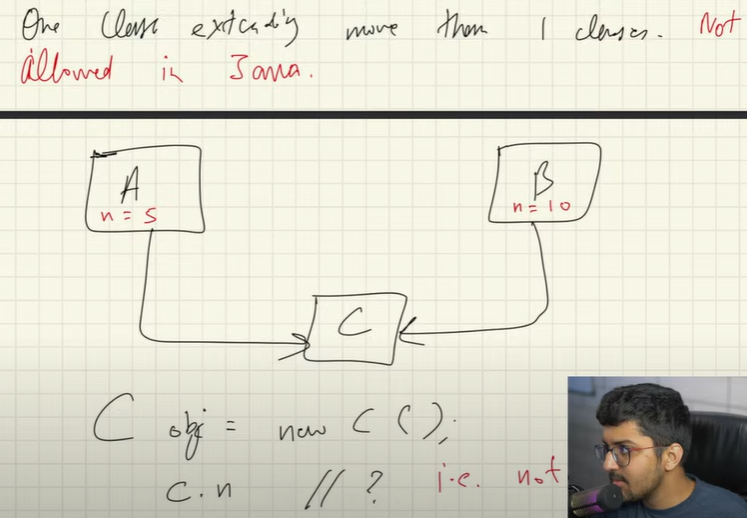 One class extending more than 1 classes. Not
Allowed in Java.
A
n = 5
B
n = 10
C
C obj = new C();
c.n // ? i.e. not